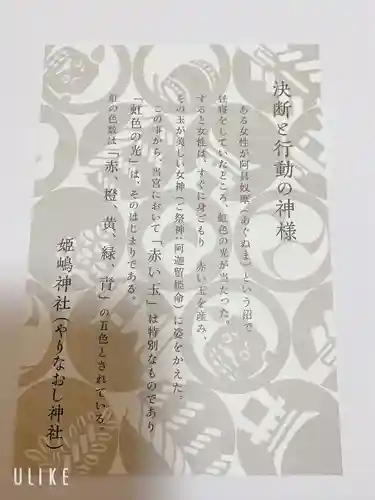 決断と行動の神様
ある女性が阿具奴摩(あぐぬま)という沼で
昼寝をしていたところ、虹色の光が当たった。
すると女性は、すぐに身ごもり 赤い玉を産み、
その玉が美しい女神(ご祭神:阿迦留姫命)に姿をかえた。
この事から、当宮において「赤い玉」は特別なものであり
「虹色の光」は、そのはじまりである。
虹の色数は「赤、橙、黄、緑、青」の五色とされている。
姫嶋神社(やりなおし神社)
ULIKE